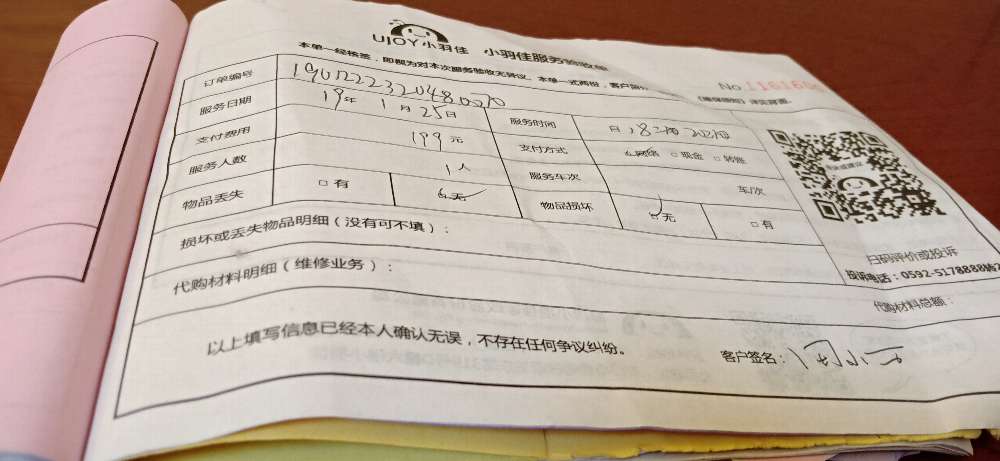 UJOY小羽佳 小羽佳服务验收单
本单一经核签，即视为对本次服务验收无异议。本单一式两份，客户
No.
订单编号
服务日期 19年 1月 25日 服务时间 日
支付费用 199元 支付方式 网络 □现金 □转账
服务人数 1人 服务车次 车/次
物品丢失 □有 无 物品损坏 无 □有
损坏或丢失物品明细（没有可不填）：
代购材料明细（维修业务）：
扫码评价或投诉
投诉电话：0592-5178888转2
代购材料总额：
以上填写信息已经本人确认无误，不存在任何争议纠纷。 客户签名：